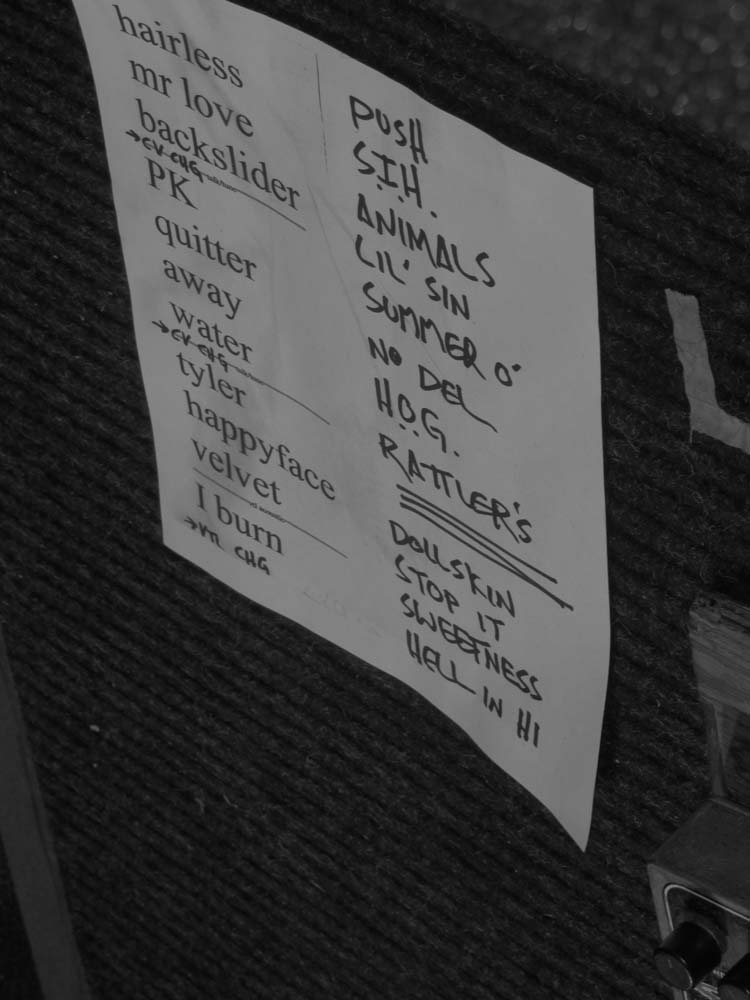 hairless
mr love
backslider
→CV-CHG
PK
quitter
away
water
→CV-CHG
tyler
happyface
velvet
I burn
CHG
PUSH
S.I.H.
ANIMALS
LIL' SIN
SUMMER O'
NO DEL
H.O.G.
RATTLER'S
DOLLSKIN
STOP IT
SWEETNESS
HELL IN HI